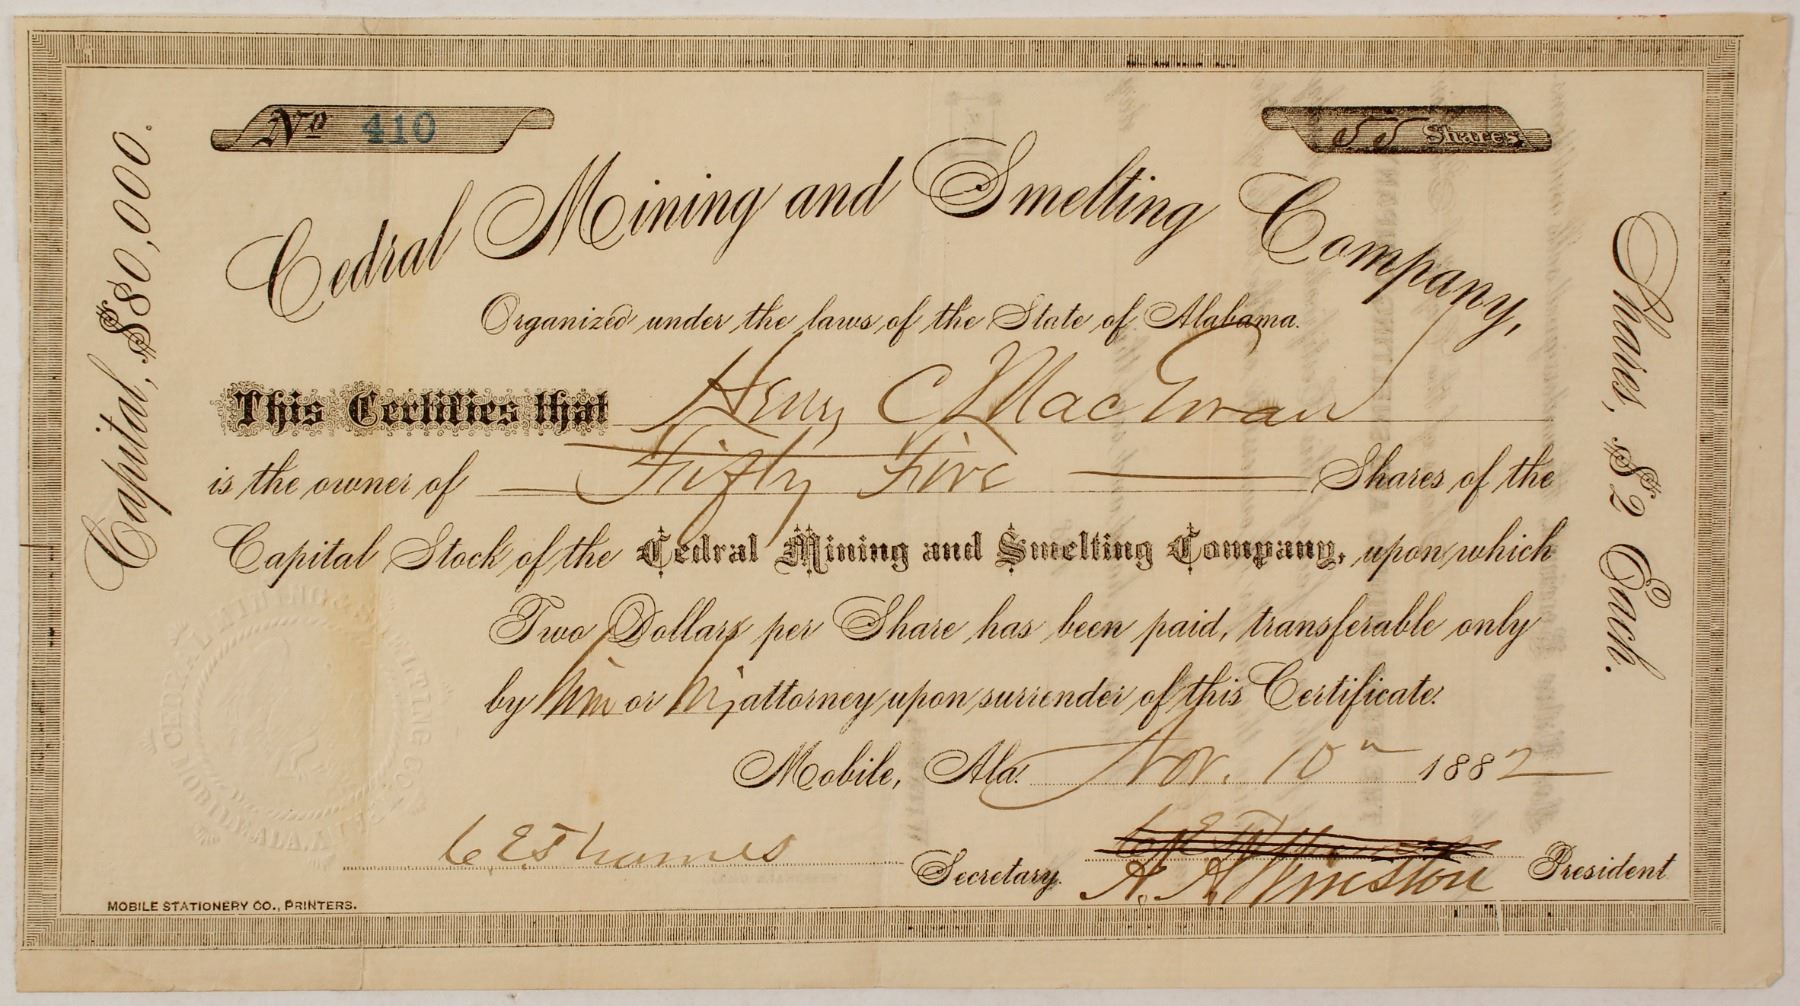 No 410
55 Shares
Capital, $80,000.
Cedral Mining and Smelting Company,
Organized under the laws of the State of Alabama.
This Certifies that Henry C MacEwan
is the owner of Fifty Five Shares of the
Capital Stock of the Cedral Mining and Smelting Company, upon which
Two Dollars per Share has been paid, transferable only
by him or his attorney upon surrender of this Certificate.
Mobile, Ala. Nov. 10th 1882
C E Thames Secretary. A. A. Winston President
MOBILE STATIONERY CO., PRINTERS.
Shares, $2 Each.
CEDRAL MINING & SMELTING CO.
MOBILE, ALA.